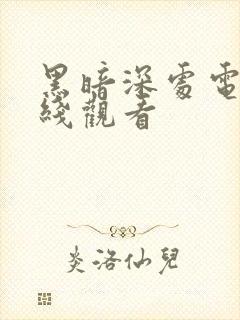 黑暗深處電
綫觀看
炎洛仙兒